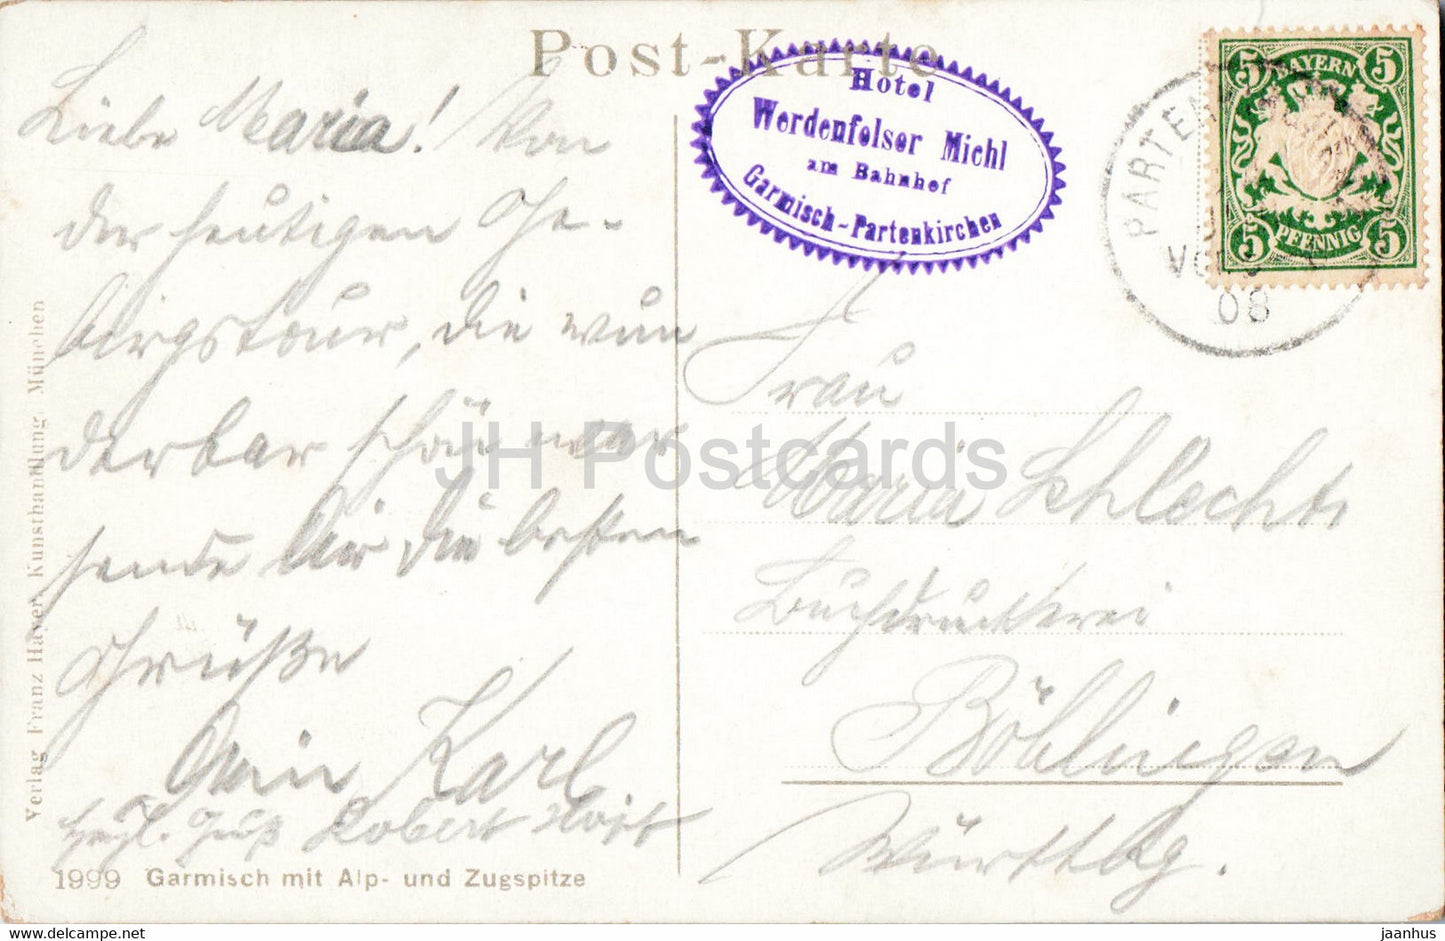 Post-Karte
Hotel
Werdenfelser Michl
am Bahnhof
Garmisch-Partenkirchen
BAYERN
5 5
5 5
PFENNIG
PARTEN
08
Liebe Maria! Von
der heutigen Ge-
birgstour, die wun
derbar schön war
sende Dir die besten
Grüße
Dein Karl
Gruß Robert
Frau
Maria Schlecht
Buchdruckerei
Böblingen
Württbg.
Verlag Franz Hayer, Kunsthandlung, München
1999 Garmisch mit Alp- und Zugspitze
JH Postcards
www.delcampe.net
jaanhus